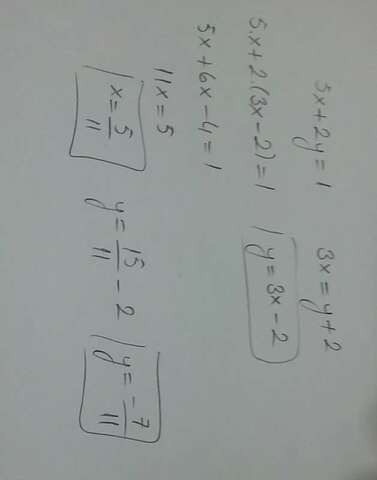 5x+2y=1 3x=y+2
5.x+2.(3x-2)=1 y=3x-2
5x+6x-4=1
11x=5
x=5/11 y=15/11-2 y=-7/11